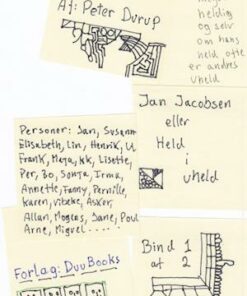 Af: Peter Durup
heldig
og selv
om hans
held ofte
er andres
uheld
Jan Jacobsen
eller
Held
i
uheld
Personer: Jan, Susanne
Elisabeth, Lin, Henrik, U
Frank, Maja, kk, Lisette,
Per, Bo, Sonja, Irma,
Annette, Fanny, Pernille,
Karen, Vibeke, Asker,
Allan, Mogens, Jane, Poul
Arne, Miguel.....
Forlag: DuuBooks
Bind 1
af 2